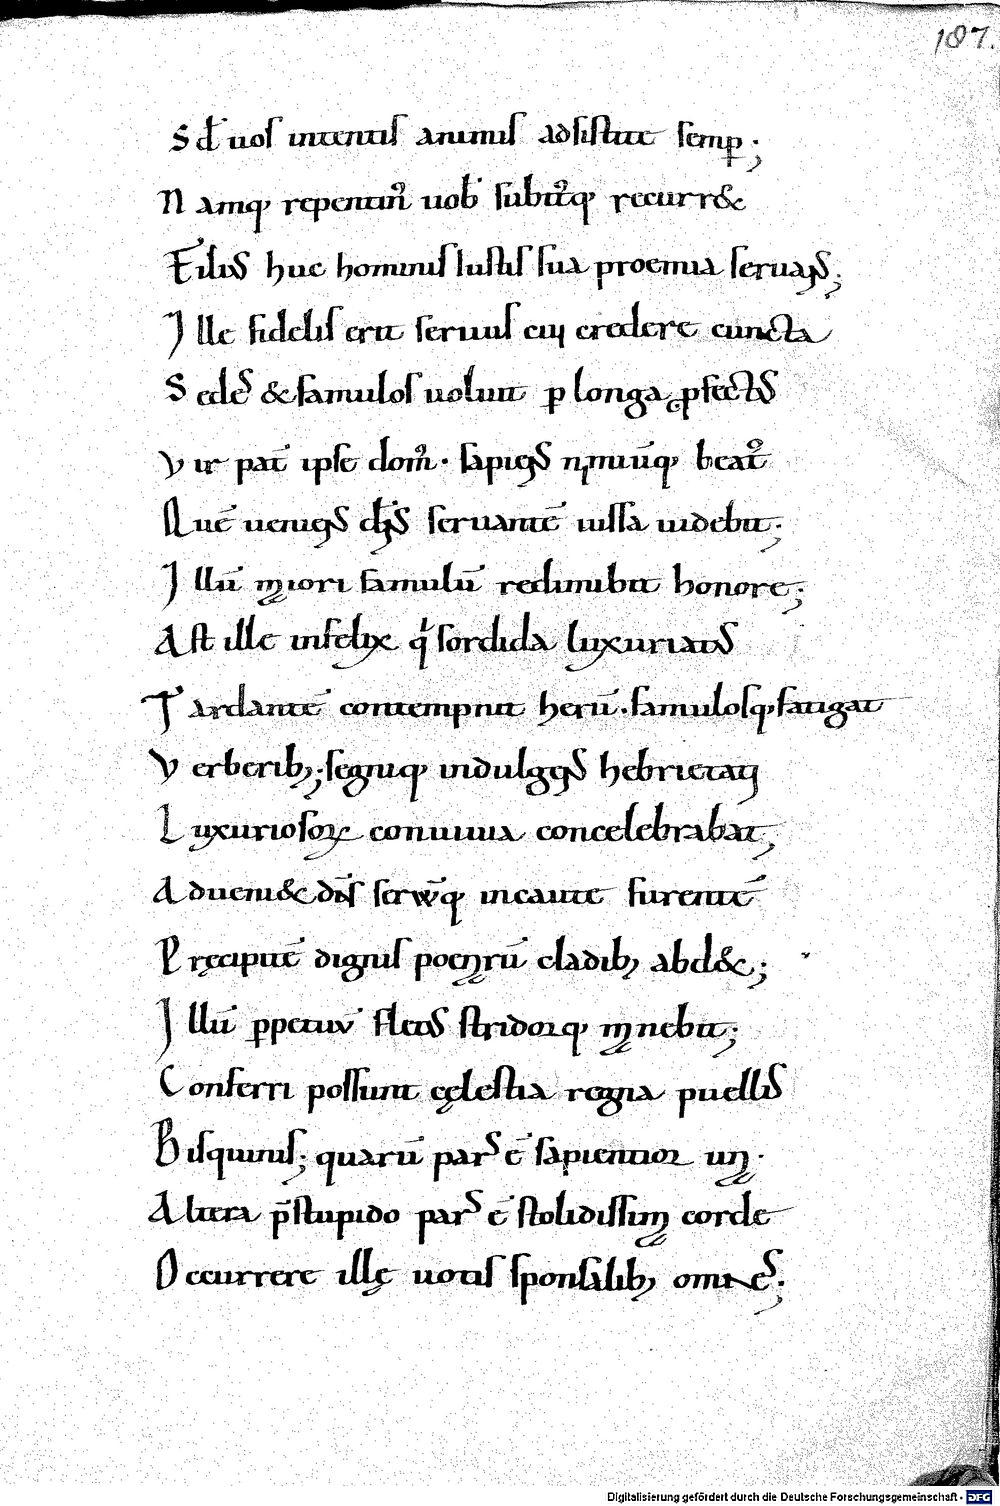 187.
Sꝫ uos intentis animis adsistite semꝑ;
Namq; repentin᷒ uob̄ subit᷒q; recurr&
Filius huc hominis iustis sua proemia seruans;
Ille fidelis erit seruus cui credere cuncta
Sedes & famulos uoluit ꝑ longa ꝓfectus
Vir pat̄ ipse dom᷒· sapiens nimiūq; beat᷒
Quē ueniens dn̄s seruantē iussa uidebit;
Illū maiori famulū redimibit honore;
Ast ille infelix q̇ sordida luxuriatus
Tardantē contempnit herū. famulosq; fatigat
Verberib;; segniq; indulgens hebrietati
Luxuriosoꝝ conuiuia concelebrabat;
Adueni& dn̄s seruūq; incaute furentē
Pręcipitē dignis poenarū cladib; abd&;
Illū ꝑpetuus fletus stridorq; manebit;
Conferri possunt cęlestia regna puellis
Bisquinis; quarū pars ē sapientior una·
Altera p̄stupido pars ē stolidissima corde
Occurrere illę uotis sponsalib; omnes;
Digitalisierung gefördert durch die Deutsche Forschungsgemeinschaft - DFG